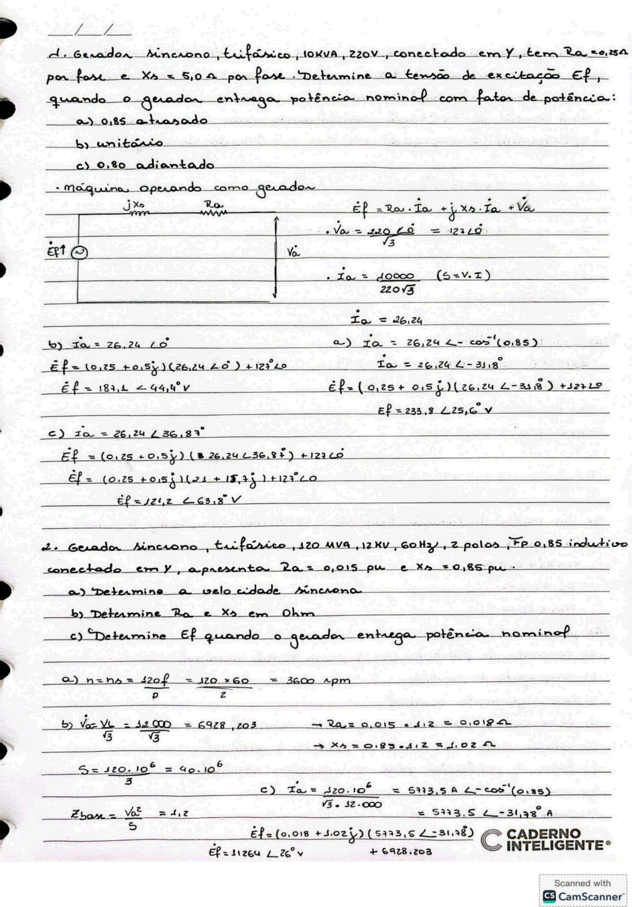 __/__/__
1. Gerador síncrono, trifásico, 10KVA, 220V, conectado em Y, tem Ra = 0,25Ω
por fase e Xs = 5,0 Ω por fase. Determine a tensão de excitação Ef,
quando o gerador entrega potência nominal com fator de potência:
a) 0,85 atrasado
b) unitário
c) 0,80 adiantado
· máquina operando como gerador
jxs Ra
Ėf = Ra · İa + j xs · İa + V̇a
Ėf↑ V̇a
· V̇a = 220 ∠0° / √3 = 127∠0°
· İa = 10000 / 220√3 (S=V.I)
İa = 26,24
b) İa = 26,24 ∠0°
a) İa = 26,24 ∠ - cos⁻¹(0,85)
Ėf = (0,25 + 0,5j)(26,24 ∠0°) + 127°∠0
İa = 26,24 ∠-31,8°
Ėf = 187,1 ∠44,4° V
Ėf = (0,25 + 0,5j)(26,24 ∠-31,8°) + 127∠0
Ef = 233,8 ∠25,6° V
c) İa = 26,24 ∠36,87°
Ėf = (0,25 + 0,5j)(26,24∠36,87°) + 127∠0°
Ėf = (0,25 + 0,5j)(21 + 15,7j) + 127°∠0
Ėf = 121,2 ∠63,8° V
2. Gerador síncrono, trifásico, 120 MVA, 12KV, 60Hz, 2 polos, Fp 0,85 indutivo
conectado em Y, apresenta Ra = 0,015 pu e xs = 0,85 pu.
a) Determine a velocidade síncrona
b) Determine Ra e Xs em Ohm
c) Determine Ef quando o gerador entrega potência nominal
a) n = ns = 120f / p = 120 × 60 / 2 = 3600 rpm
b) V̇a = VL / √3 = 12 000 / √3 = 6928,203
→ Ra = 0,015 · 1,2 = 0,018 Ω
→ Xs = 0,85 · 1,2 = 1,02 Ω
S = 120·10⁶ / 3 = 40·10⁶
c) İa = 120·10⁶ / √3 · 12·000 = 5773,5 A ∠-cos⁻¹(0,85)
= 5773,5 ∠-31,78° A
Zbase = Va² / S = 1,2
Ėf = (0,018 + 1,02j)(5773,5∠-31,78°)
+ 6928,203
Ėf = 11264 ∠26° V
CADERNO
INTELIGENTE®
Scanned with
CS CamScanner